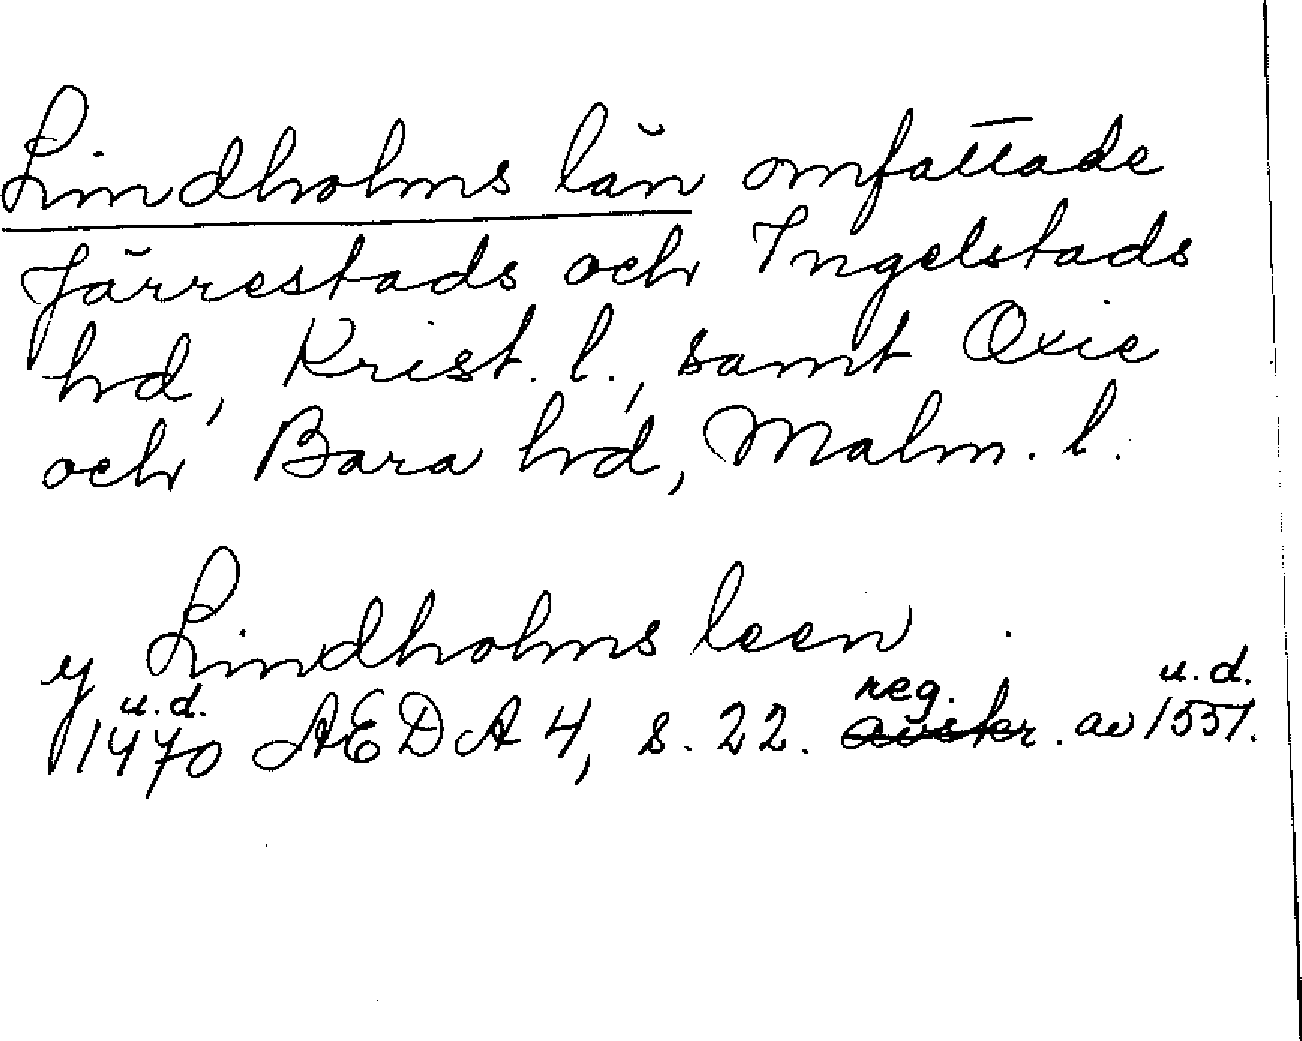 Lindholms län omfattade
Järrestads och Ingelstads
hd, Krist. l., samt Oxie
och Bara hd, Malm. l.
y Lindholms leen
u.d. reg. u.d.
1470 AEDA 4, s. 22. avskr. av 1551.